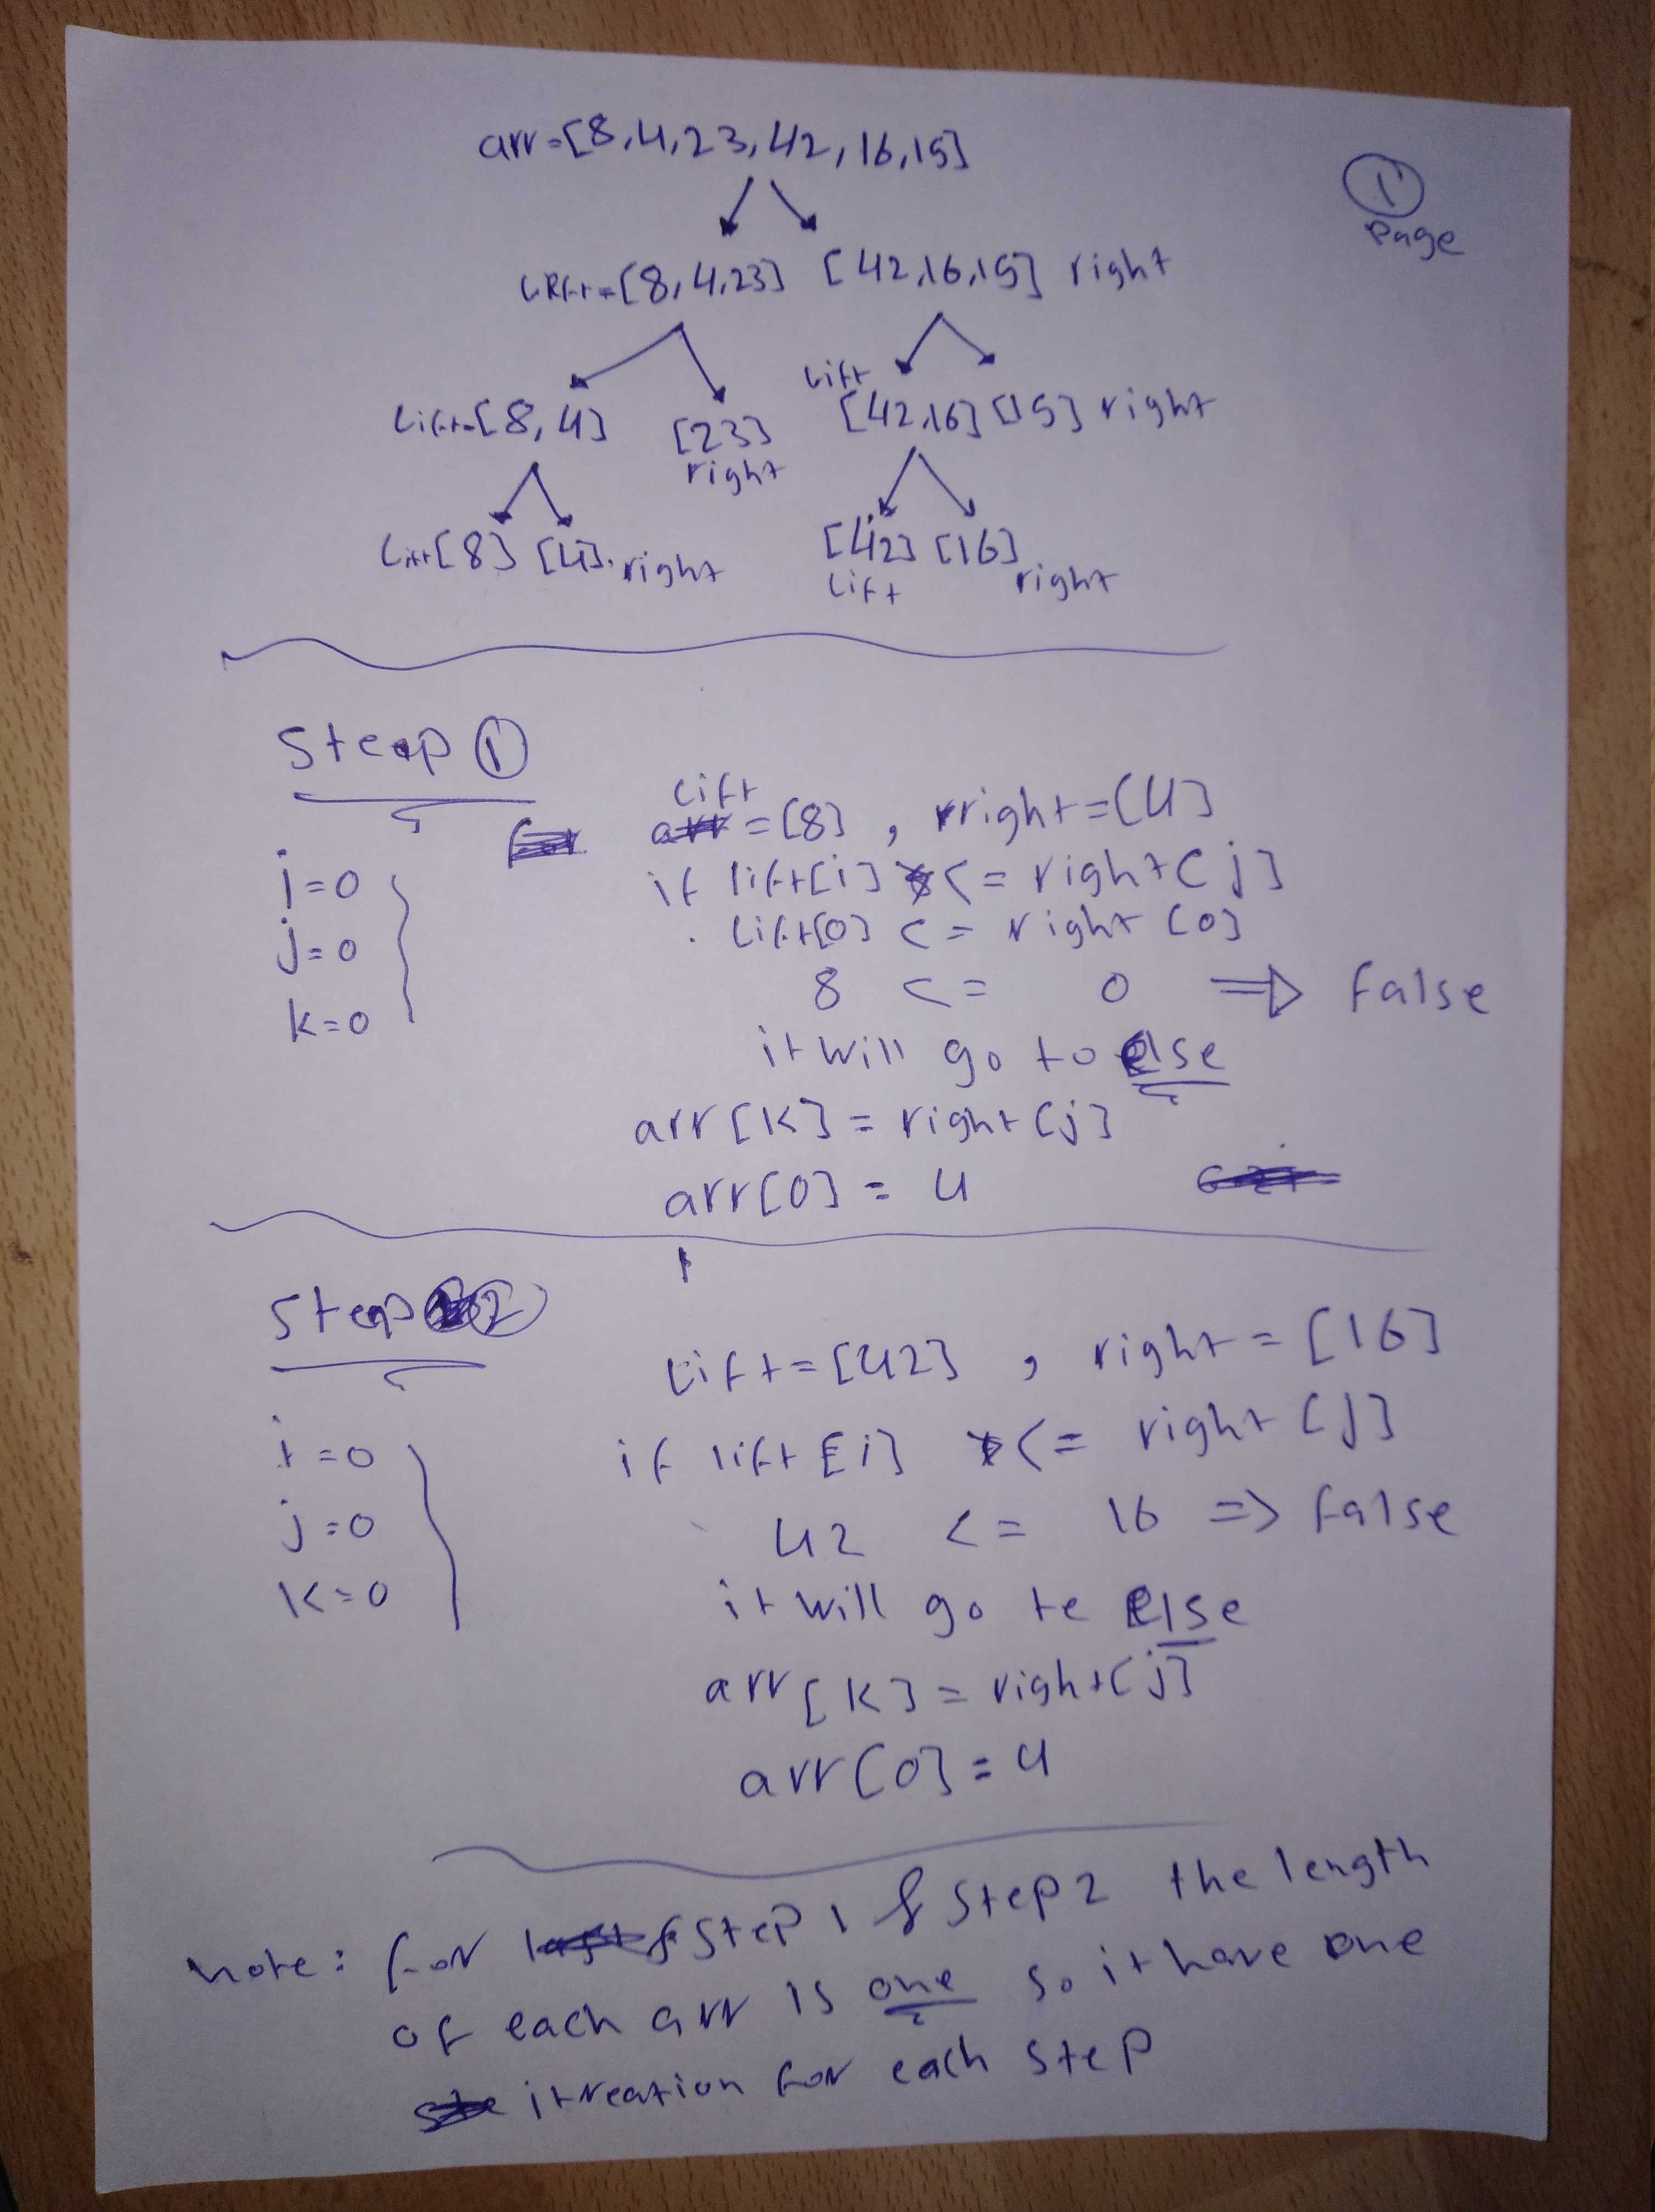 arr=[8,4,23,42,16,15]
1
Page
left=[8,4,23] [42,16,15] right
lift
lift=[8,4] [23] [42,16] [15] right
right
lift[8] [4] right [42] [16]
lift right
Steap 1
lift
arr =[8] , right=[4]
i=0
if lift[i] <= right[j]
j=0
lift[0] <= right [0]
k=0
8 <= 0 ⇒ false
it will go to else
arr[k] = right[j]
arr[0] = 4
Steap 2
lift=[42] , right=[16]
i=0
if lift[i] <= right[j]
j=0
42 <= 16 => false
k=0
it will go te else
arr[k] = right[j]
arr[0] = 4
note: for step 1 & step 2 the length
of each arr is one so it have one
itreation for each step